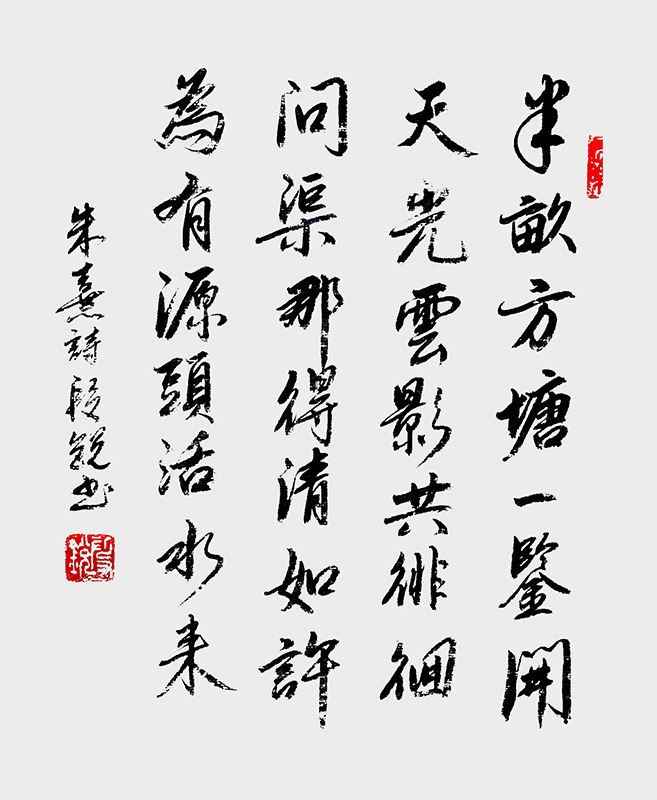 半畝方塘一鑒開
天光雲影共徘徊
問渠那得清如許
為有源頭活水来
朱熹詩段銳书